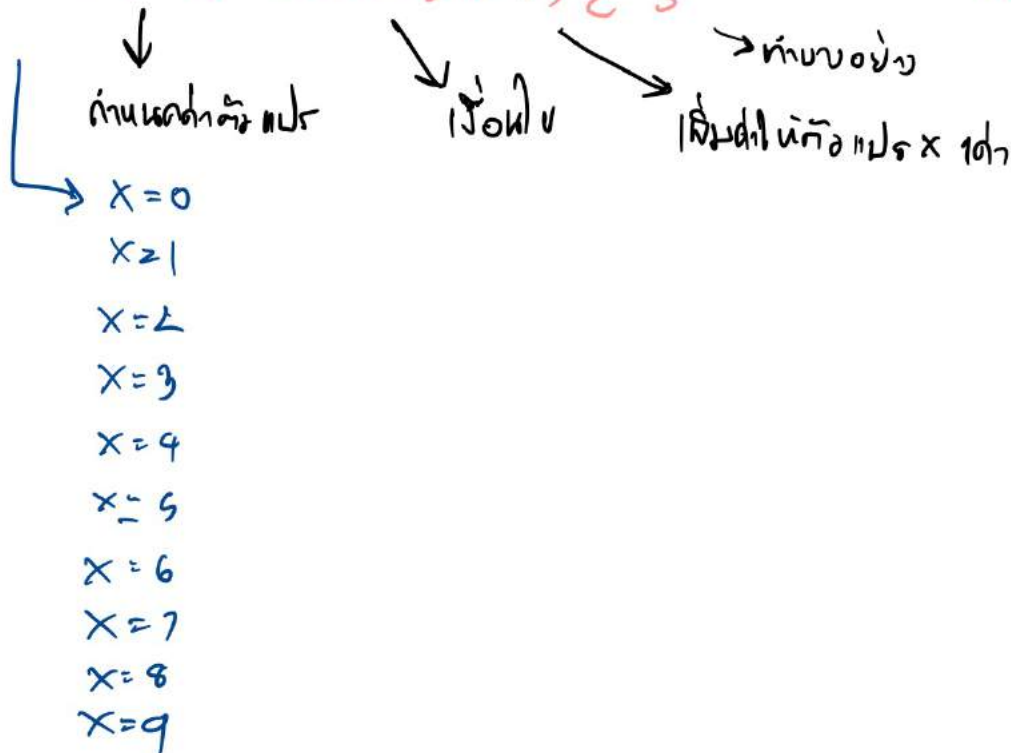 ทำบางอย่าง
กำหนดค่าตัวแปร เงื่อนไข เพิ่มค่าให้ตัวแปร x 1ค่า
x = 0
x = 1
x = 2
x = 3
x = 4
x = 5
x = 6
x = 7
x = 8
x = 9